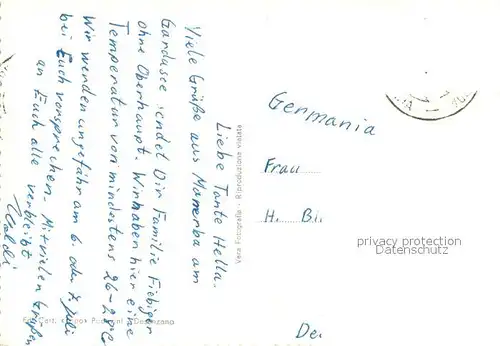 Liebe Tante Hella.
Viele Grüße aus Manerba am
Gardasee sendet Dir Familie Fiebiger
ohne Oberhaupt. Wir haben hier eine
Temperatur von mindestens 26-28°C
Wir werden ungefähr am 6. oder 7. Juli
bei Euch vorsprechen. Mit vielen Grüßen
an Euch alle verbleibt
Vera Fotografia - Riproduzione vietata
Germania
Frau
H. Bi.
privacy protection
Datenschutz
De